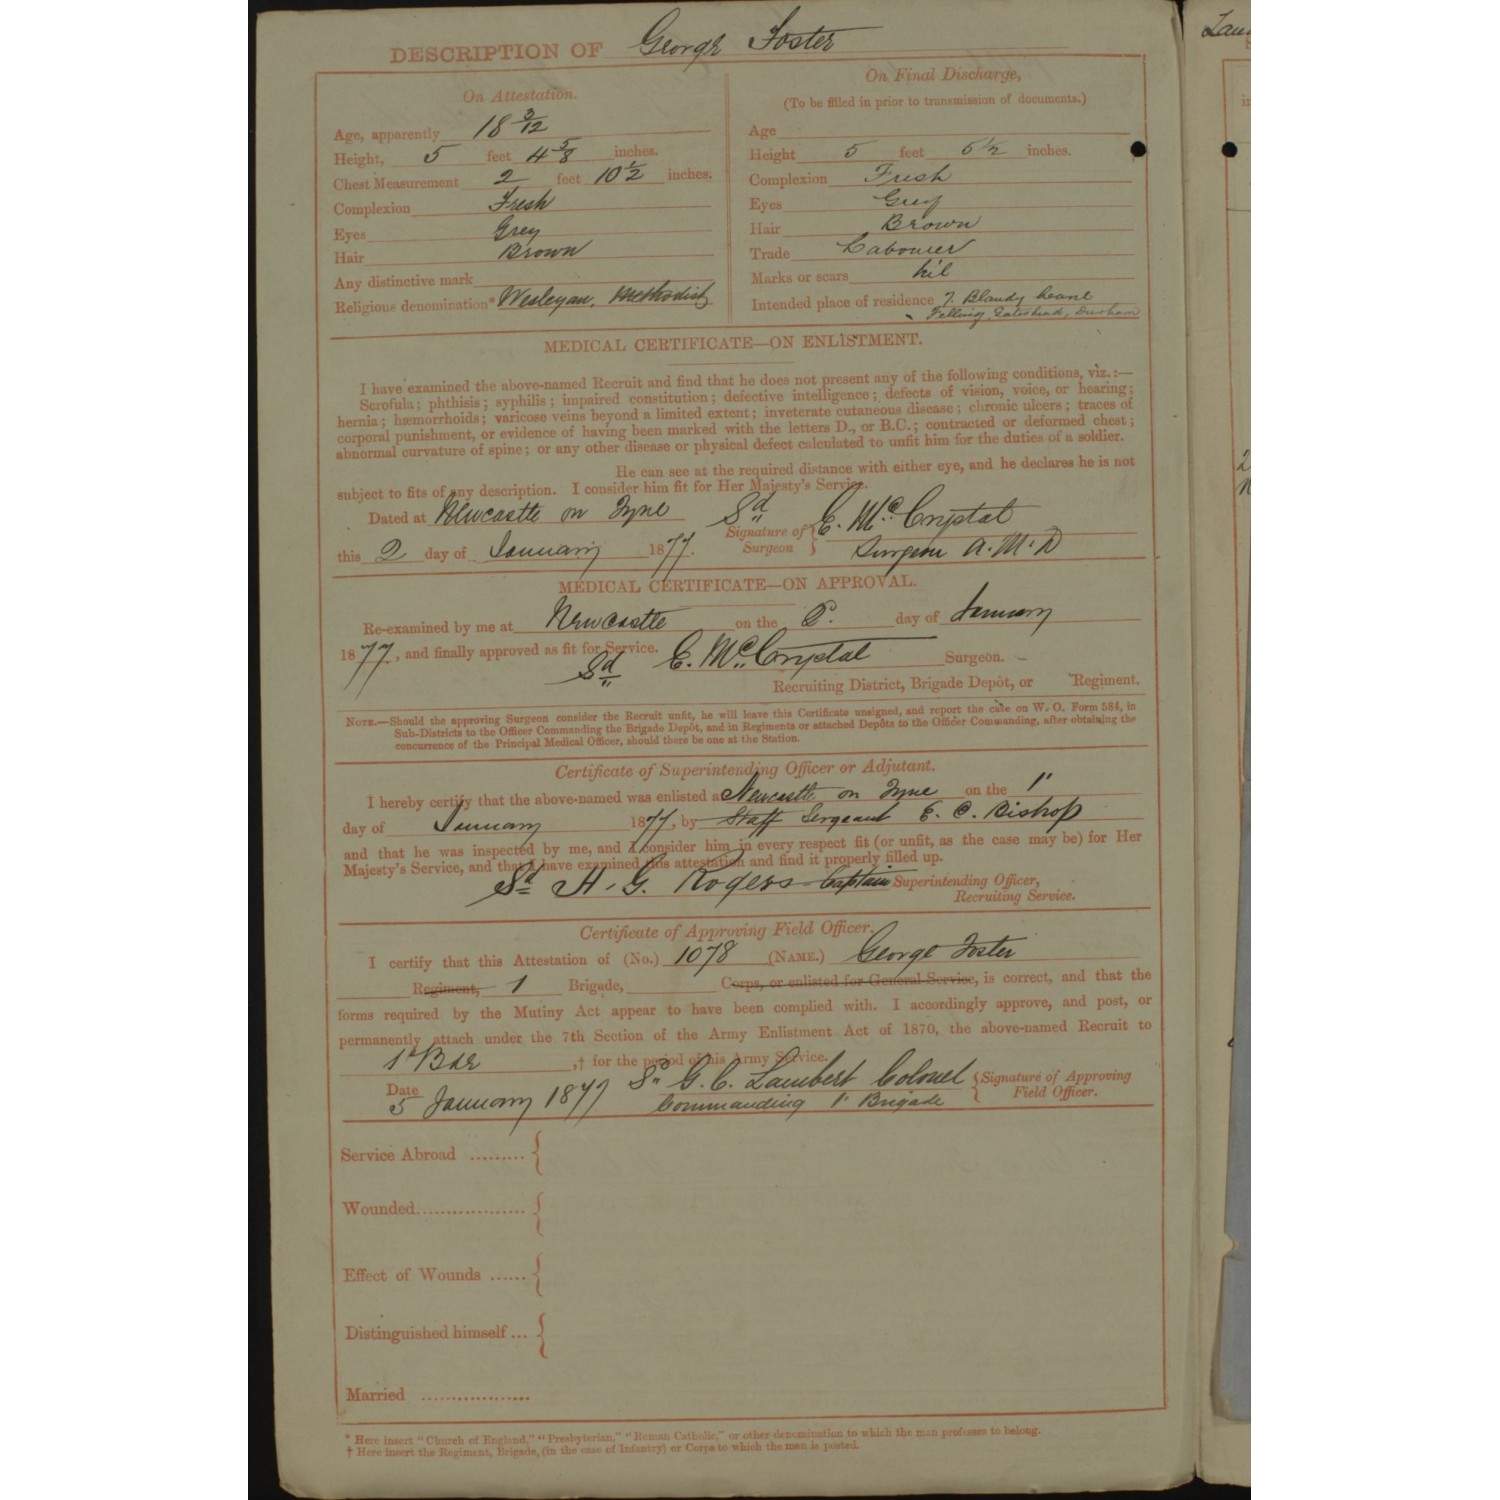 DESCRIPTION OF George Foster
On Attestation.
Age, apparently 18 3/12
Height, 5 feet 4 5/8 inches.
Chest Measurement 2 feet 10 1/2 inches.
Complexion Fresh
Eyes Grey
Hair Brown
Any distinctive mark
Religious denomination* Wesleyan, Methodist
On Final Discharge,
(To be filled in prior to transmission of documents.)
Age
Height 5 feet 6 1/2 inches.
Complexion Fresh
Eyes Grey
Hair Brown
Trade Labourer
Marks or scars Nil
Intended place of residence 7. Blandy
Felling, Gateshead, Durham
MEDICAL CERTIFICATE—ON ENLISTMENT.
I have examined the above-named Recruit and find that he does not present any of the following conditions, viz.:—
Scrofula; phthisis; syphilis; impaired constitution; defective intelligence; defects of vision, voice, or hearing;
hernia; hæmorrhoids; varicose veins beyond a limited extent; inveterate cutaneous disease; chronic ulcers; traces of
corporal punishment, or evidence of having been marked with the letters D., or B.C.; contracted or deformed chest;
abnormal curvature of spine; or any other disease or physical defect calculated to unfit him for the duties of a soldier.
He can see at the required distance with either eye, and he declares he is not
subject to fits of any description. I consider him fit for Her Majesty's Service.
Dated at Newcastle on Tyne Sd Signature of Surgeon E. McCrystal
this 2 day of January 1877. Surgeon A.M.D
MEDICAL CERTIFICATE—ON APPROVAL.
Re-examined by me at Newcastle on the day of January
1877, and finally approved as fit for Service.
Sd E. McCrystal Surgeon.
Recruiting District, Brigade Depôt, or Regiment.
NOTE.—Should the approving Surgeon consider the Recruit unfit, he will leave this Certificate unsigned, and report the case on W. O. Form 584, in
Sub-Districts to the Officer Commanding the Brigade Depôt, and in Regiments or attached Depôts to the Officer Commanding, after obtaining the
concurrence of the Principal Medical Officer, should there be one at the Station.
Certificate of Superintending Officer or Adjutant.
I hereby certify that the above-named was enlisted at Newcastle on Tyne on the 1"
day of January 1877, by Staff Sergeant E. C. Bishop
and that he was inspected by me, and I consider him in every respect fit (or unfit, as the case may be) for Her
Majesty's Service, and that I have examined this attestation and find it properly filled up.
Sd H. G. Rogers Captain Superintending Officer,
Recruiting Service.
Certificate of Approving Field Officer.
I certify that this Attestation of (No.) 1078 (NAME.) George Foster
Regiment, 1 Brigade, Corps, or enlisted for General Service, is correct, and that the
forms required by the Mutiny Act appear to have been complied with. I accordingly approve, and post, or
permanently attach under the 7th Section of the Army Enlistment Act of 1870, the above-named Recruit to
1st Bde ,† for the period of his Army Service.
Date Sd G. C. Lambert Colonel Signature of Approving
5 January 1877 Commanding 1st Brigade Field Officer.
Service Abroad .........
Wounded..................
Effect of Wounds ......
Distinguished himself ...
Married ..................
* Here insert "Church of England," "Presbyterian," "Roman Catholic," or other denomination to which the man professes to belong.
† Here insert the Regiment, Brigade, (in the case of Infantry) or Corps to which the man is posted.